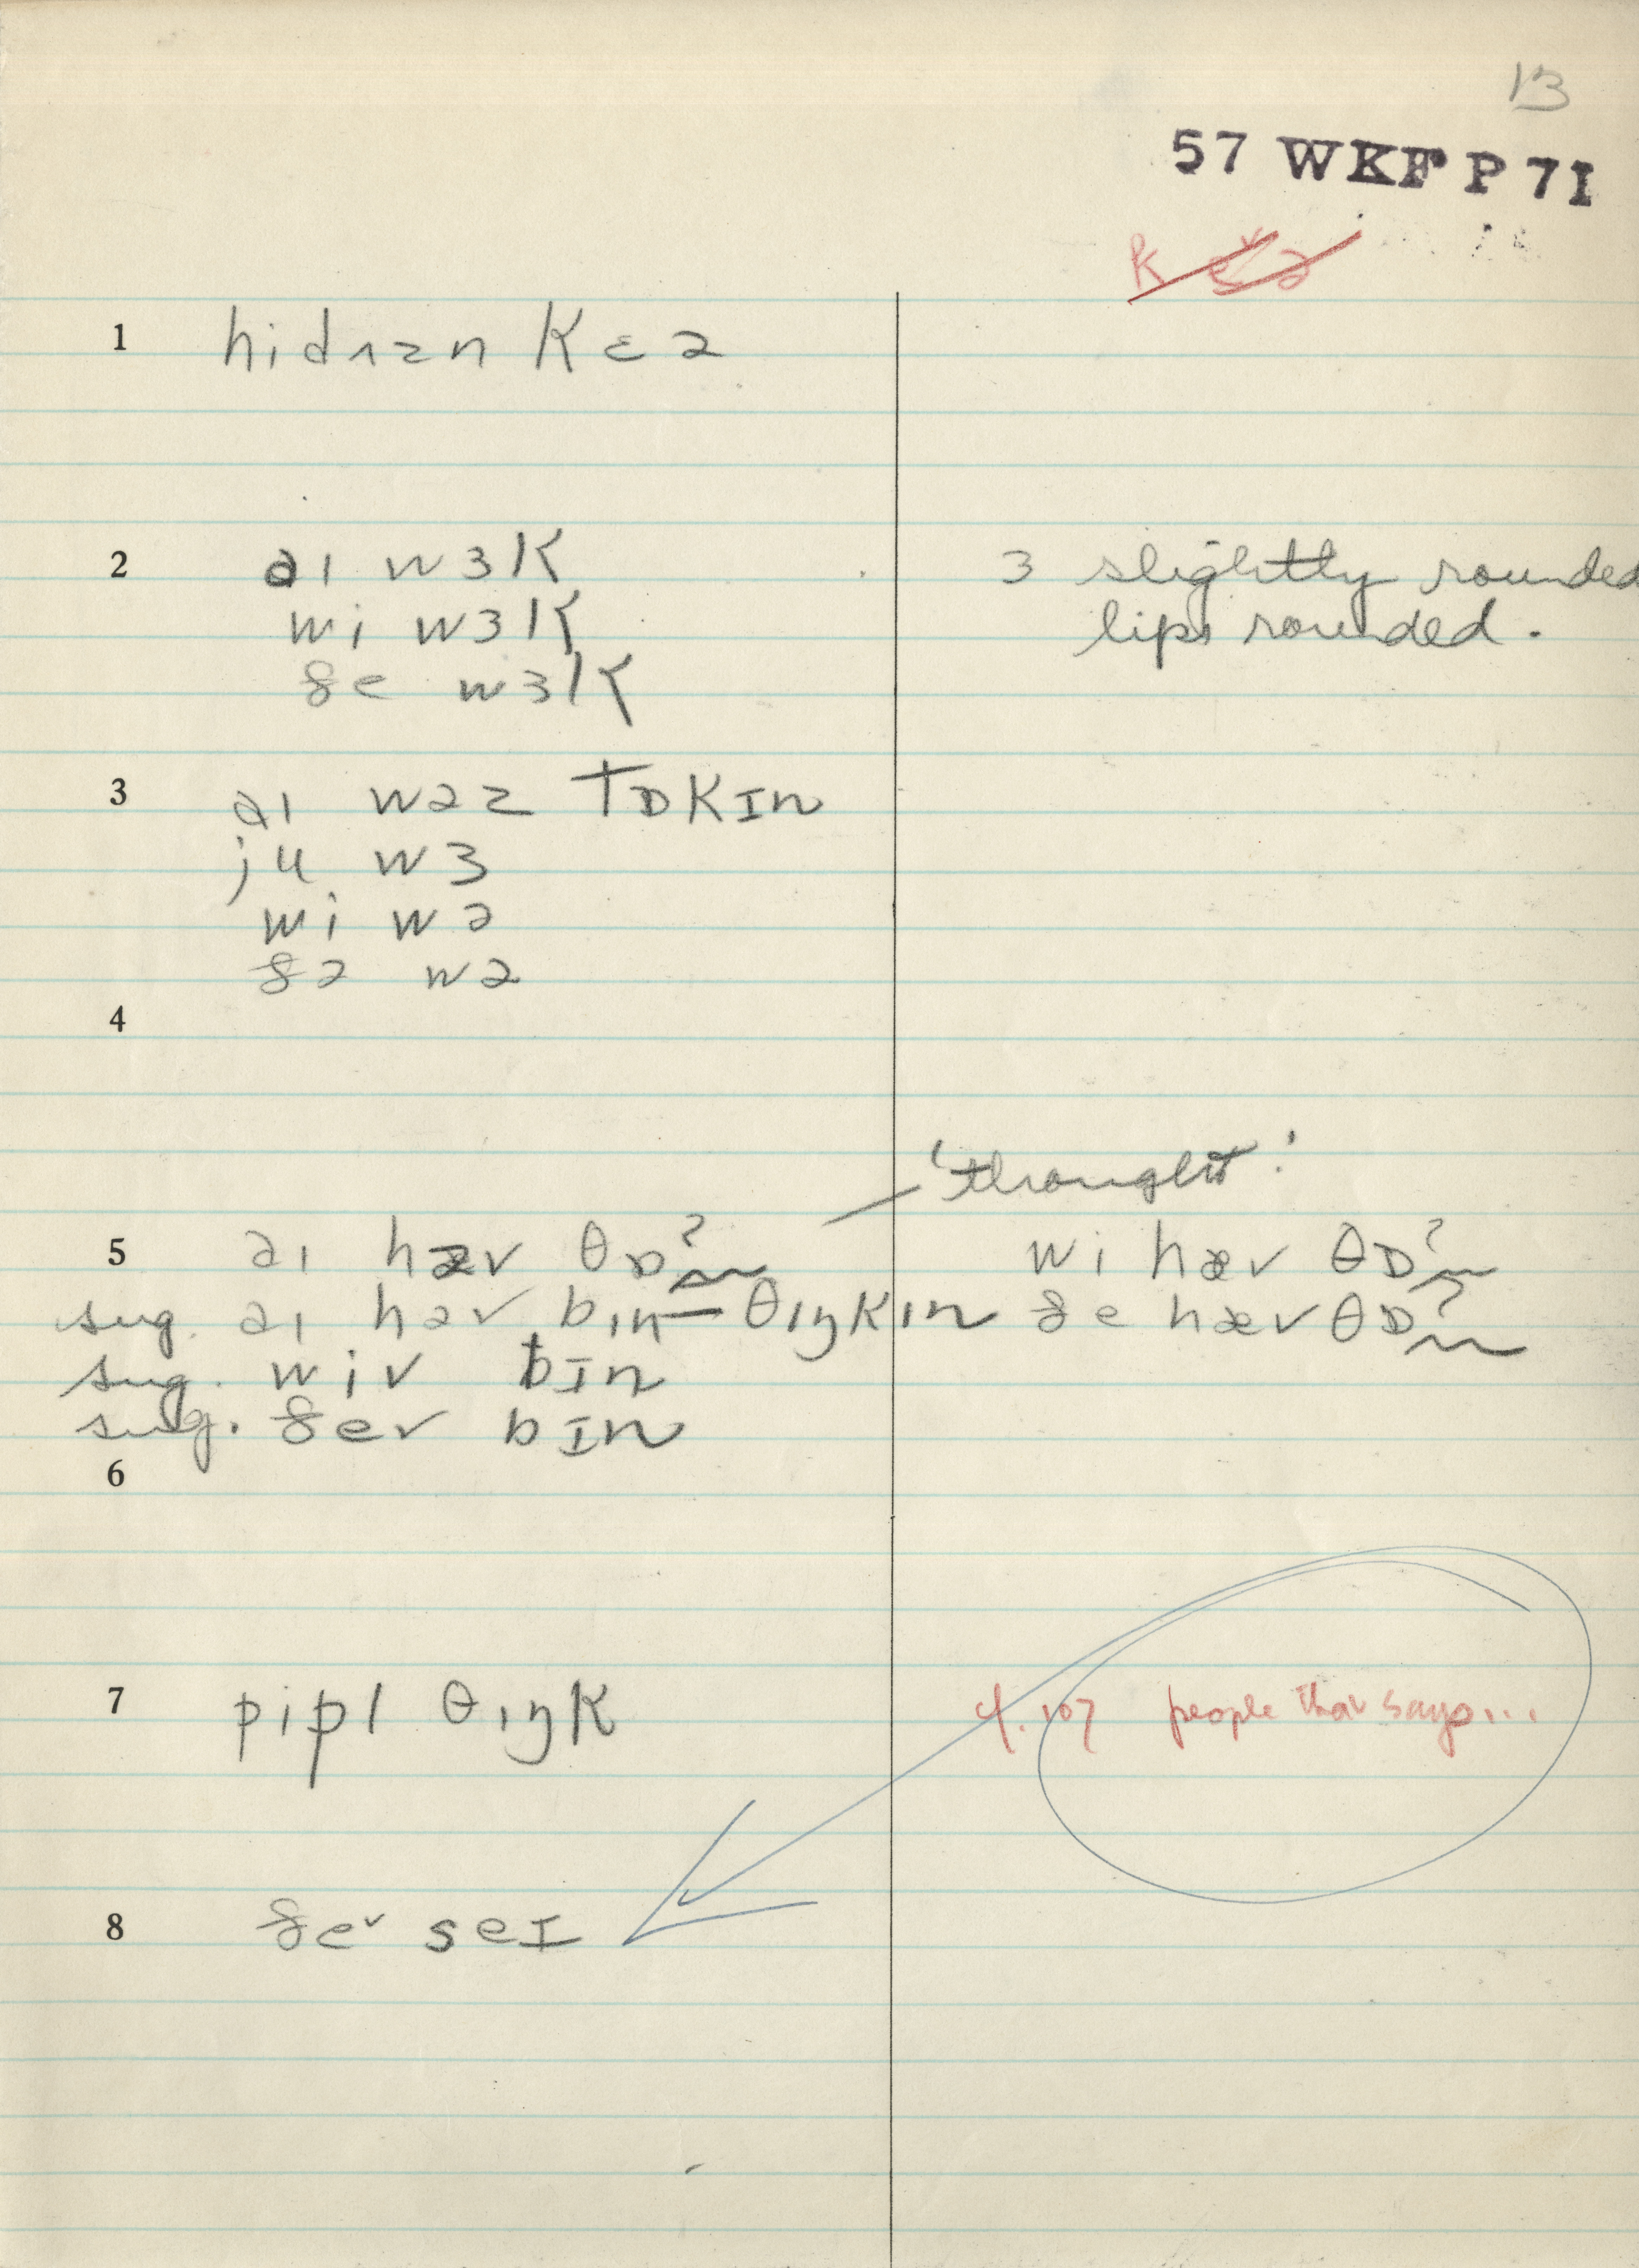 13
57 WKF P 71
1 hidʌzn kɛə
2 aɪ wɜk
ɜ slightly rounded
wi wɜk
lips rounded.
ðe wɜk
3 aɪ wəz tɒkɪn
ju wɜ
wi wə
ðə wə
4
'thought'
5 aɪ hæv θɒʔ
wi hæv θɒʔ
sug. aɪ həv bɪn θɪŋkɪn
ðe hæv θɒʔ
sug. wiv bɪn
sug. ðev bɪn
6
7 pipl θɪŋk
cf. 107 people that says...
8 ðe˅ seɪ